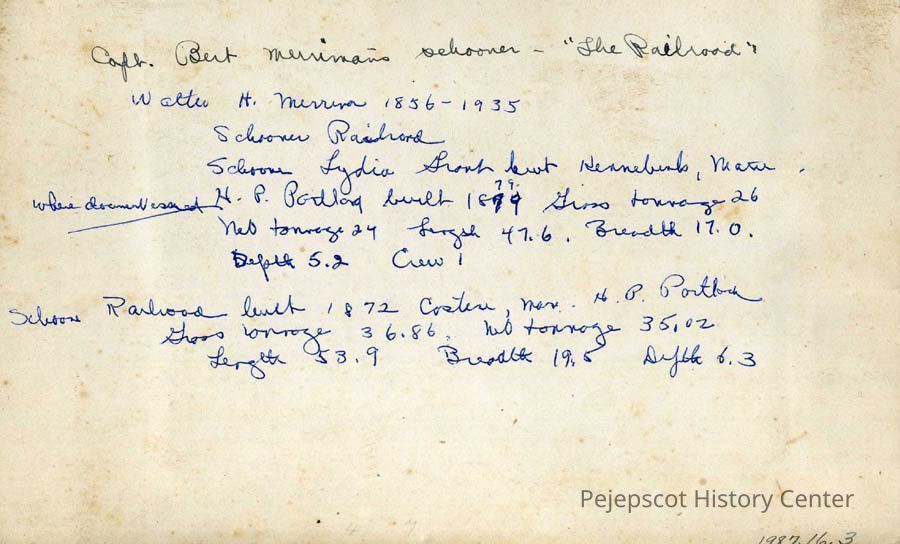 Capt. Bert Merriman's schooner - "The Railroad"
Walter H. Merriman 1856-1935
Schooner Railroad
Schooner Lydia Grant built Kennebunk, Maine.
where document issued H. P. Portland built 1879 79 Gross tonnage 26
Net tonnage 24 Length 47.6. Breadth 17.0.
Depth 5.2 Crew 1
Schooner Railroad built 1872 Castine, Me. H. P. Portland
Gross tonnage 36.86. Net tonnage 35.02
Length 53.9 Breadth 19.5 Depth 6.3
Pejepscot History Center
1987.16.3